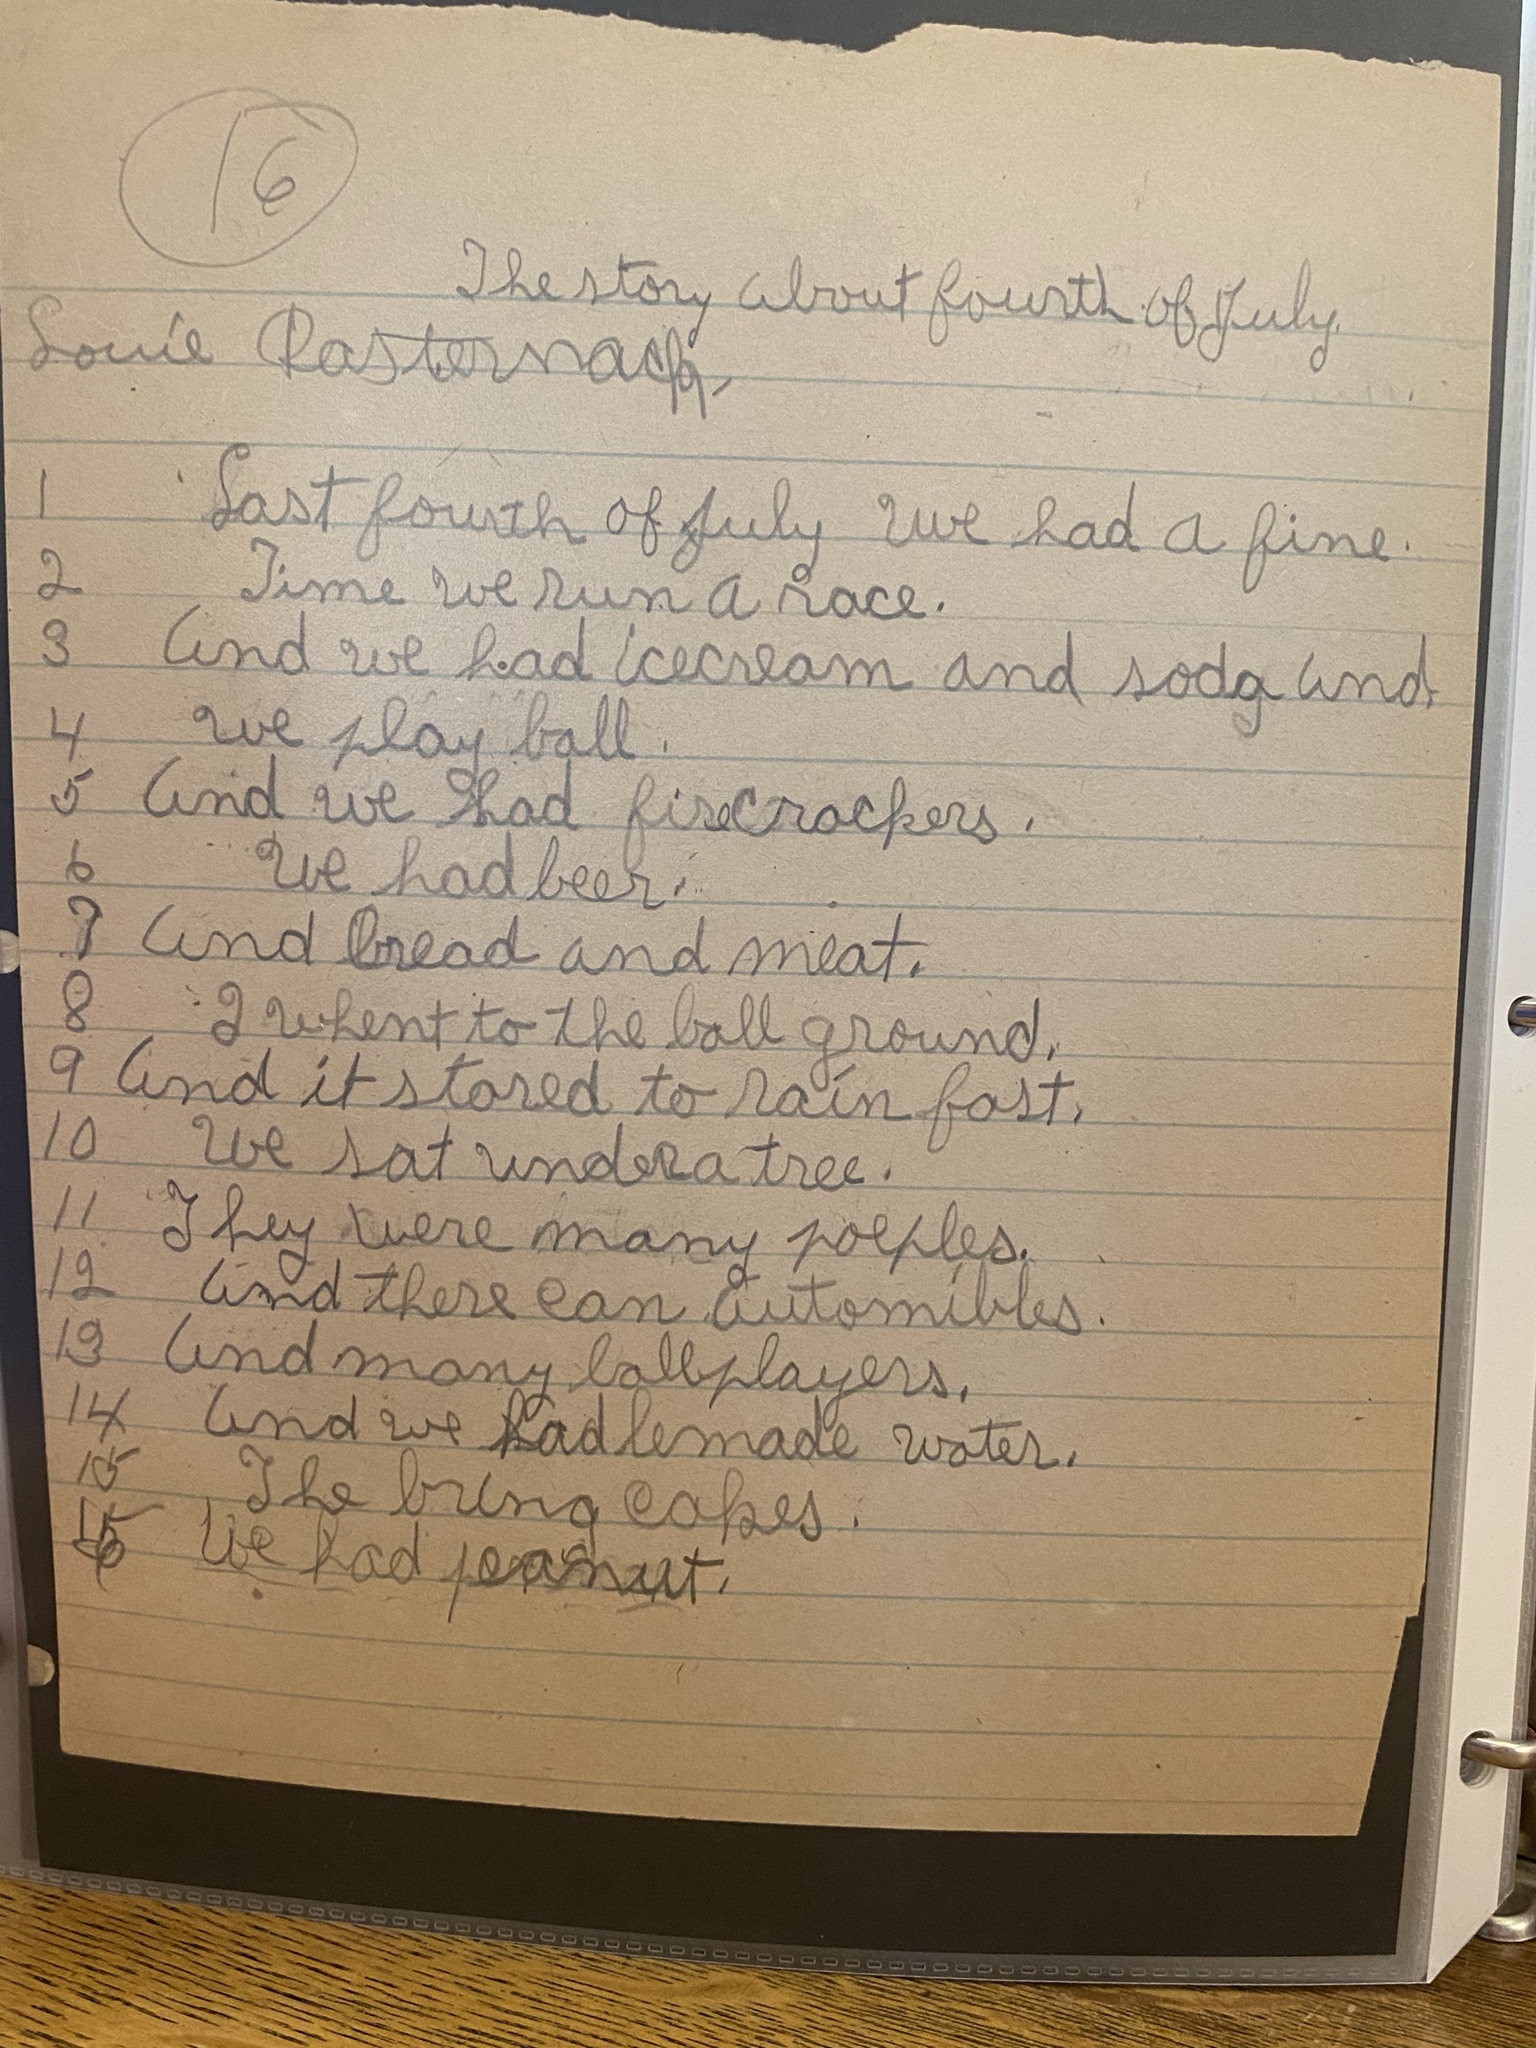 16
The story about fourth of July.
Louie Pasternack.
1 Last fourth of July we had a fine.
2 Time we run a race.
3 And we had icecream and soda and.
4 we play ball.
5 And we had firecrackers.
6 We had beer.
7 And bread and meat.
8 I whent to the ball ground.
9 And it stared to rain fast.
10 We sat under a tree.
11 They were many poeples.
12 And there can automibles.
13 And many ballplayers.
14 And we had lemade water.
15 The bring cakes.
16 We had peanut.